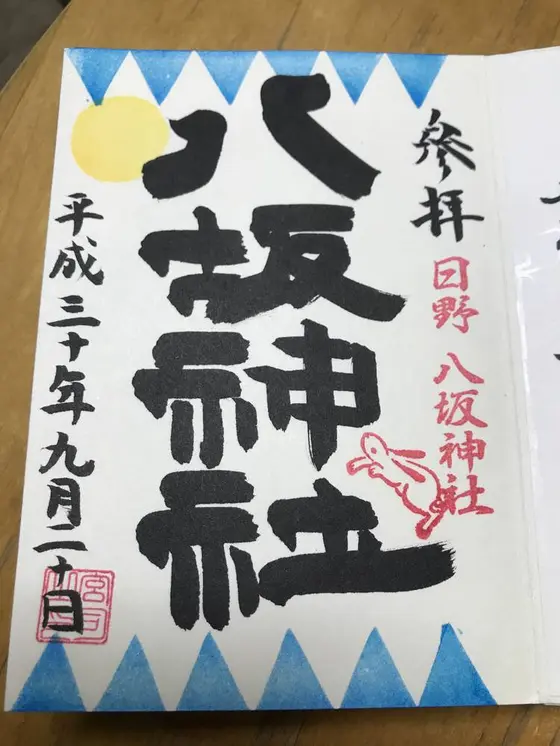 参拝
日野 八坂神社
八坂神社
平成三十年九月二十日